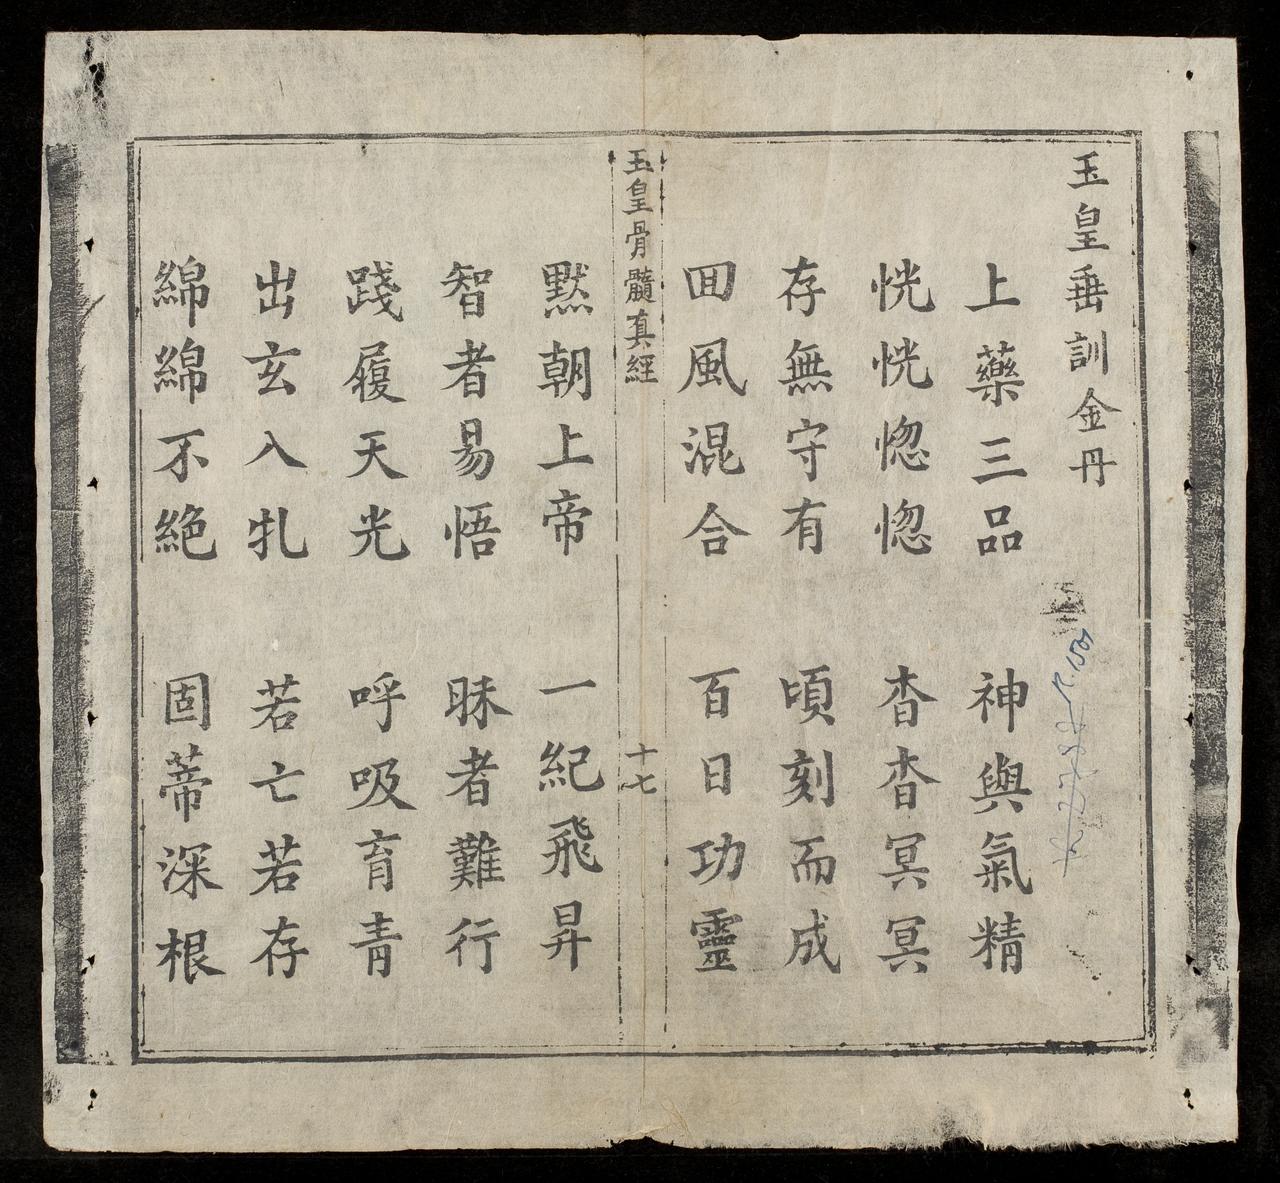 玉皇垂訓金丹
上藥三品 神與氣精
恍恍惚惚 杳杳冥冥
存無守有 頃刻而成
囬風混合 百日功靈
玉皇骨髓真經 十七
默朝上帝 一紀飛昇
智者易悟 昧者難行
踐履天光 呼吸育青
出玄入牝 若亡若存
綿綿不絕 固蒂深根